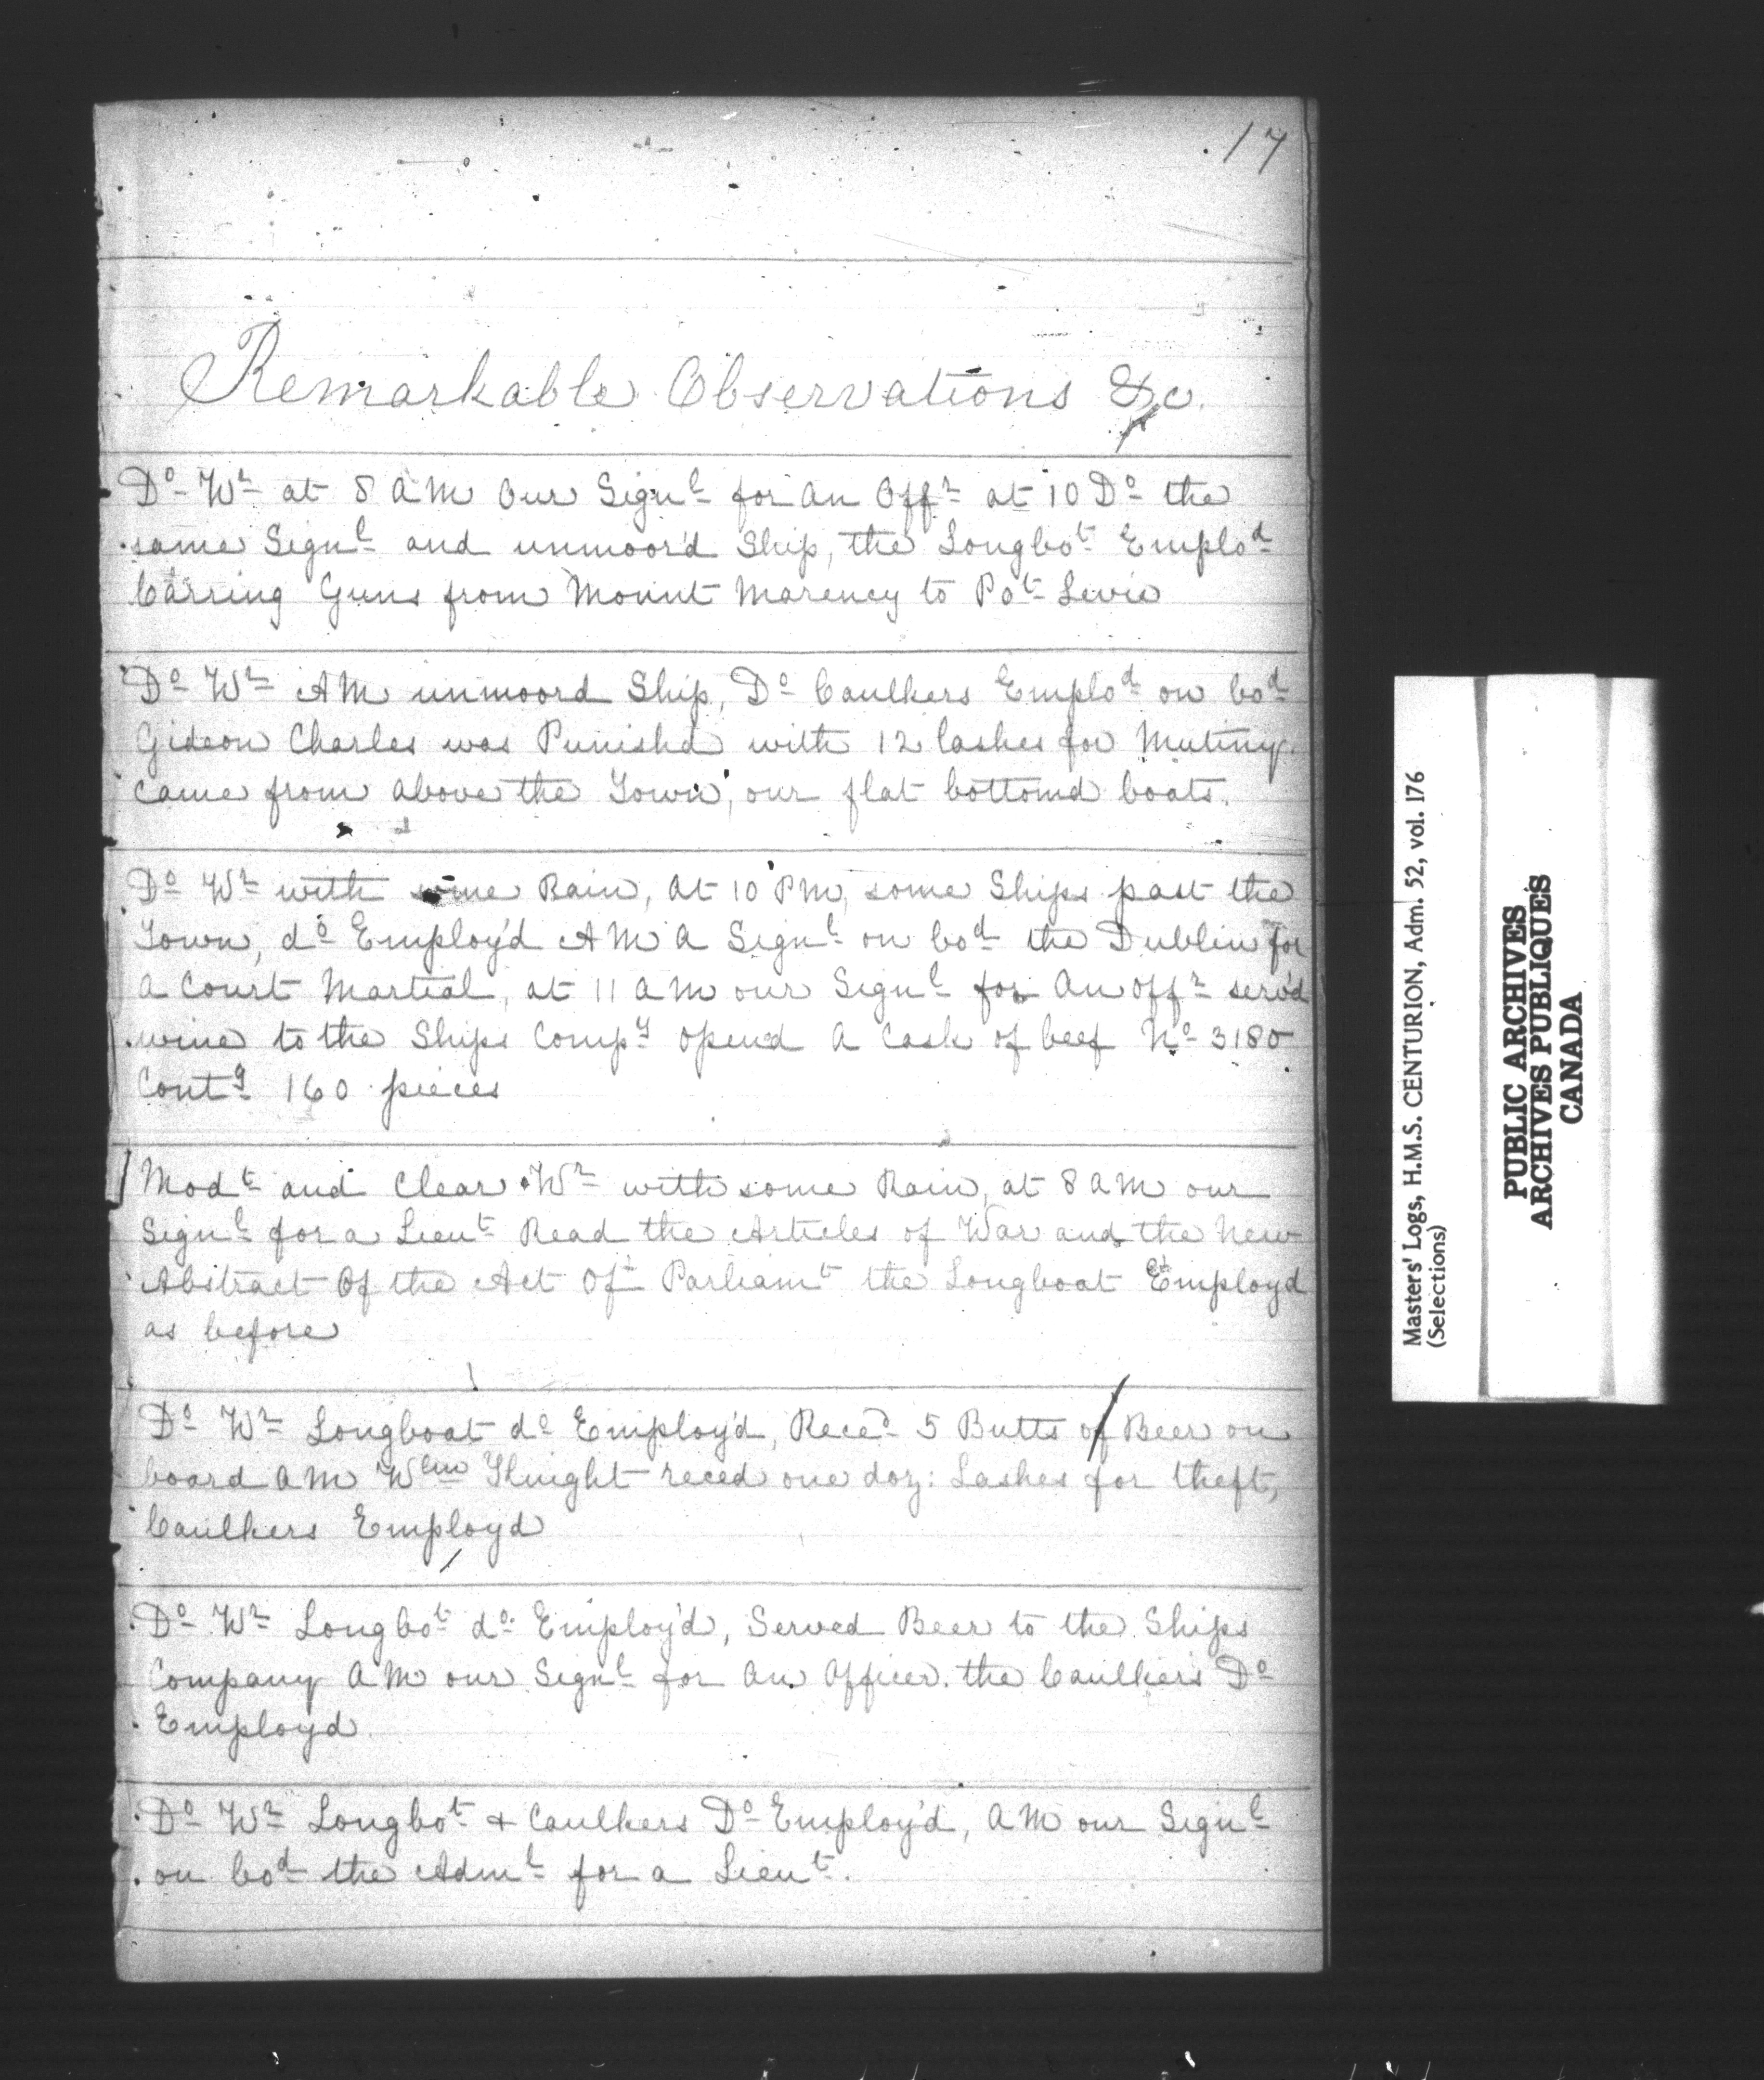 17
Remarkable Observations &c.
Do Wr at 8 AM Our Signl for An Offr at 10 Do the
same Signl and unmoor'd Ship, the Longbot Emplod
Carring Guns from Mount Marency to Pot Levis
Do Wr AM unmoord Ship, Do Caulkers Emplod on bod
Gideon Charles was Punishd with 12 lashes for Mutiny.
Came from above the Town, our flat bottomd boats.
Do Wr with some Rain, At 10 PM, some Ships past the
Town, do Employ'd AM A Signl on bod the Dublin for
A Court Martial, at 11 AM our Signl for An offr serv'd
wine to the Ships Compy opend A Cask of beef No 3180
Contg 160 pieces
Modt and Clear Wr with some Rain, at 8 AM our
Signl for a Lieut Read the Articles of War and the New
Abstract Of the Act Of Parliamt the Longboat Employd
as before
Do Wr Longboat do Employ'd, Recd 5 Butts of Beer on
board AM Wlm Knight reced one doz: Lashes for theft,
Caulkers Employd
Do Wr Longbot do Employ'd, Served Beer to the Ships
Company AM our Signl for An Officer. the Caulkers Do
Employd.
Do Wr Longbot & Caulkers Do Employ'd, AM our Signl
on bod the Adml for a Lieut.
Masters' Logs, H.M.S. CENTURION, Adm. 52, vol. 176
(Selections)
PUBLIC ARCHIVES
ARCHIVES PUBLIQUES
CANADA